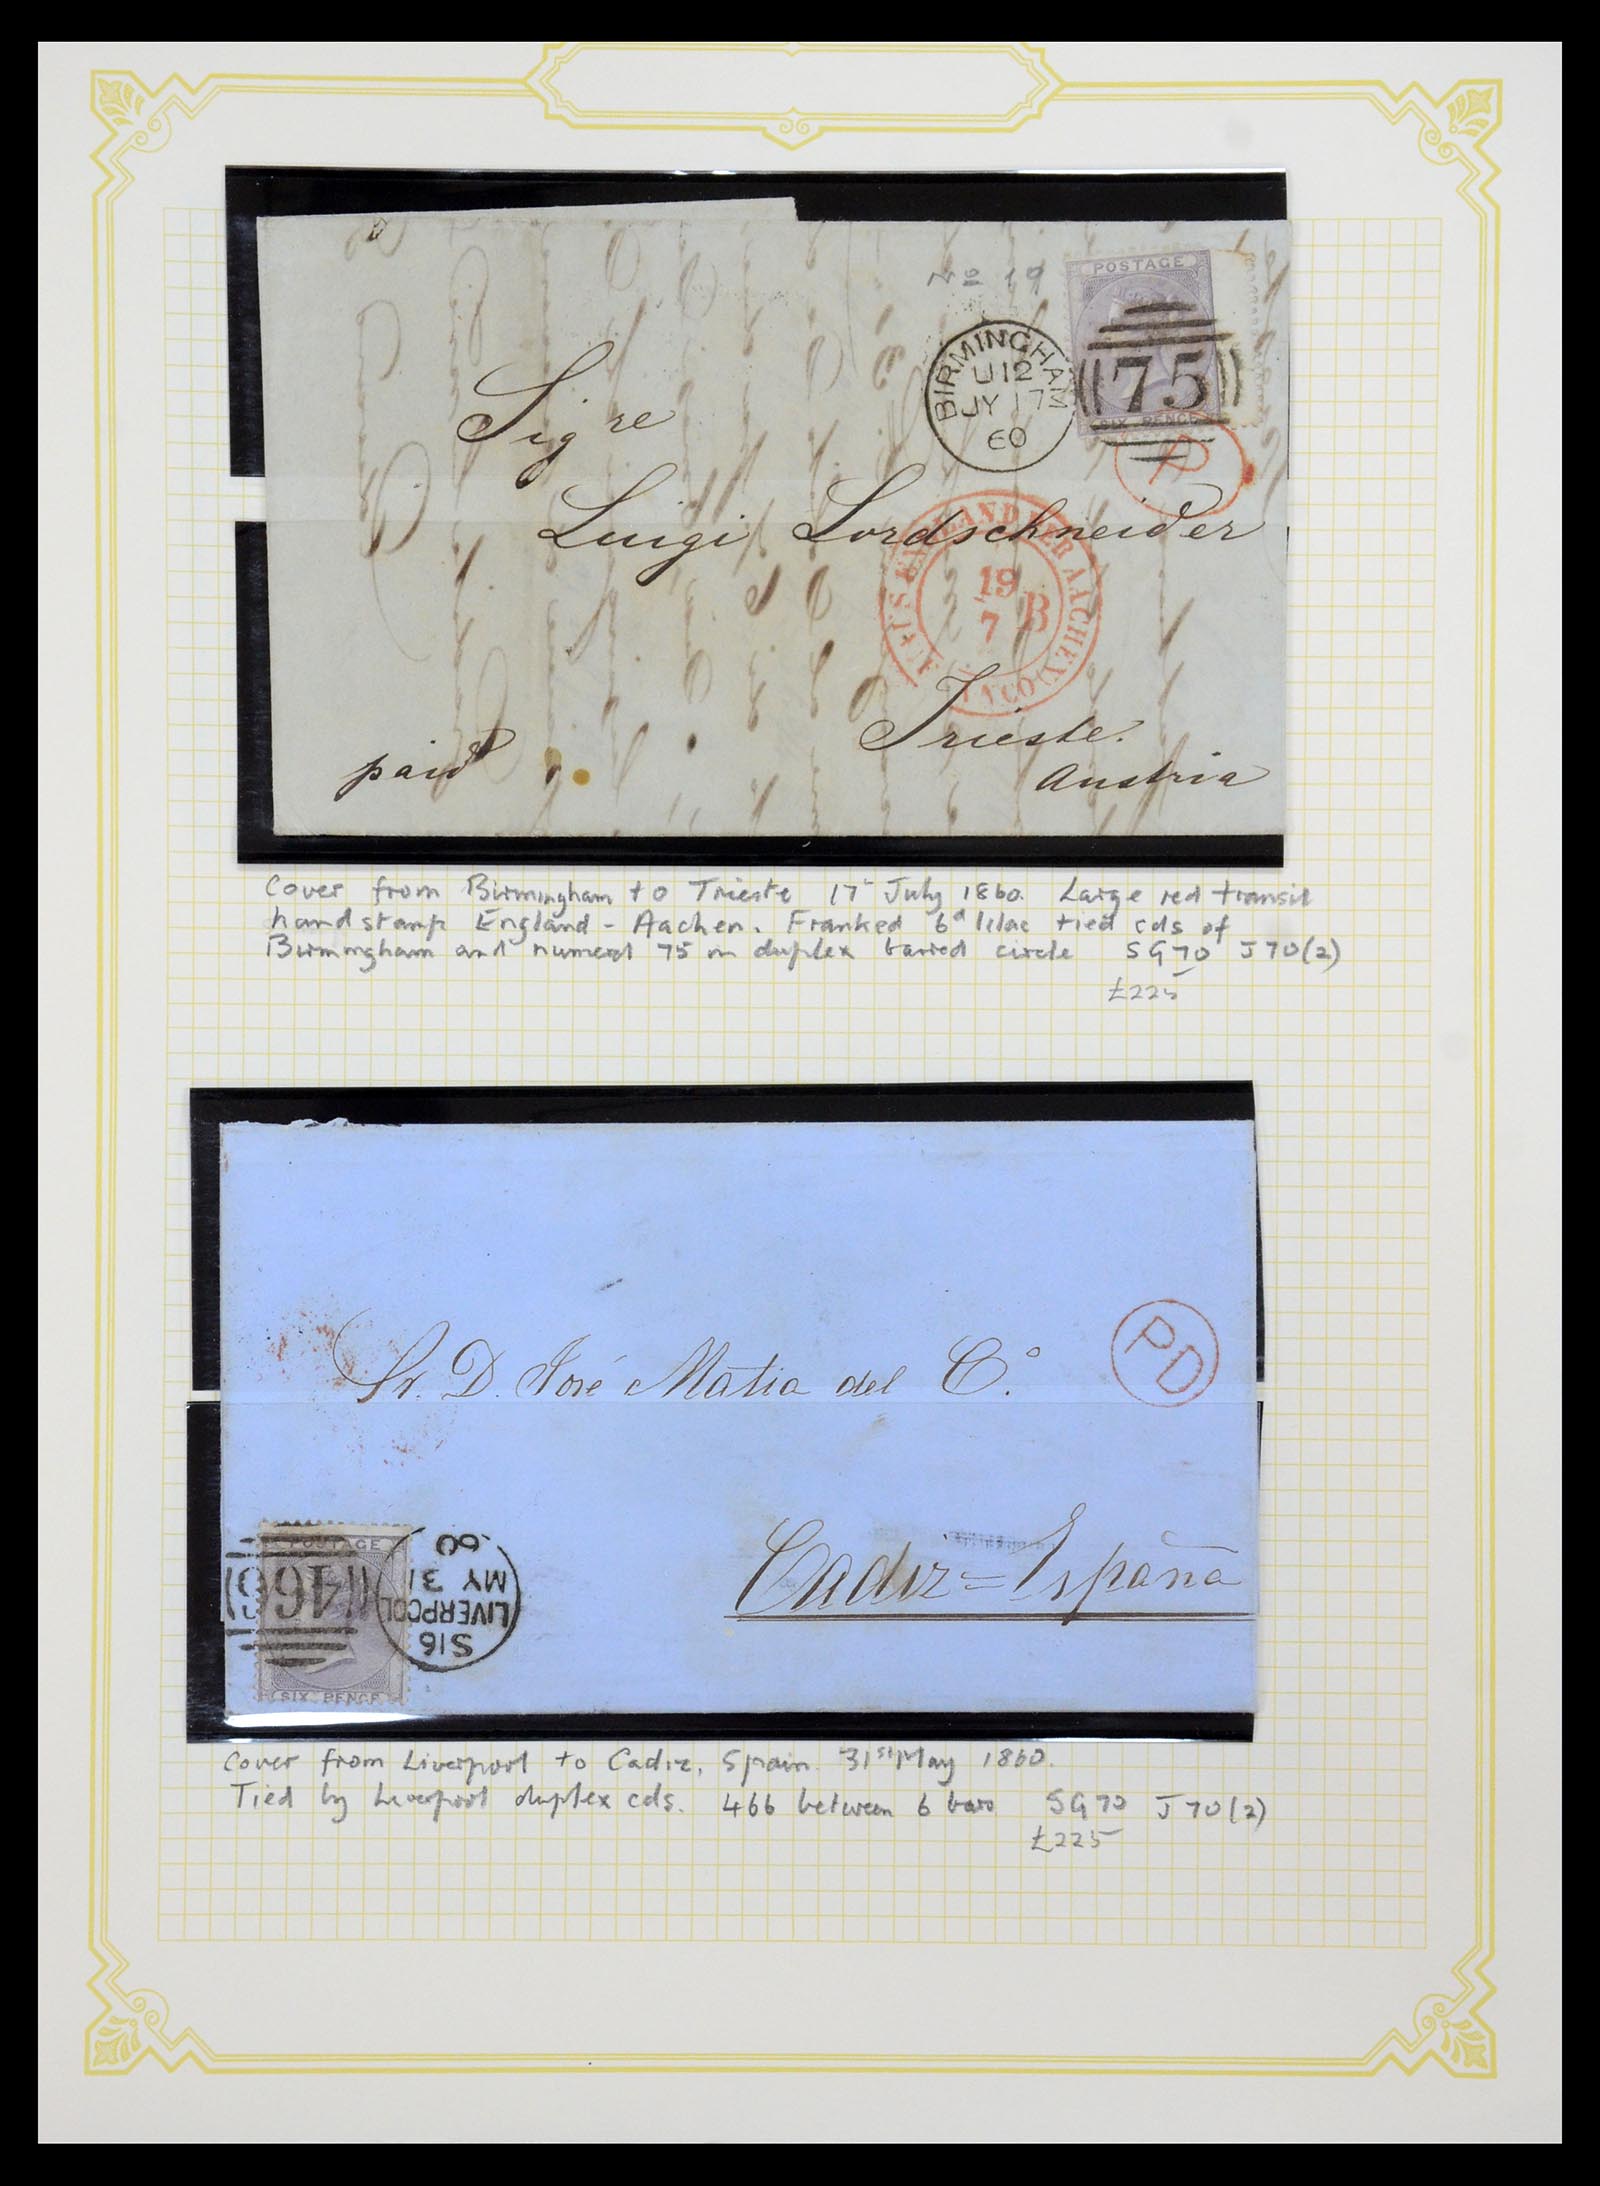 No 19
POSTAGE
SIX PENCE
BIRMINGHAM
U12
JY 17
60
75
P
Sigre
Luigi Lordschneider
ENGLAND PER AACHEN
19
7
B
FRANCO
Trieste.
Austria
paid
Cover from Birmingham to Trieste 17 July 1860. Large red transit
handstamp England - Aachen. Franked 6d lilac tied cds of
Birmingham and numeral 75 in duplex barred circle SG70 J70(2)
£225
PD
Sr. D. José Matia del C.o
Cadiz = España
POSTAGE
SIX PENCE
466
S16
LIVERPOOL
MY 31
60
Cover from Liverpool to Cadiz, Spain 31st May 1860.
Tied by Liverpool duplex cds. 466 between 6 bars SG70 J70(2)
£225